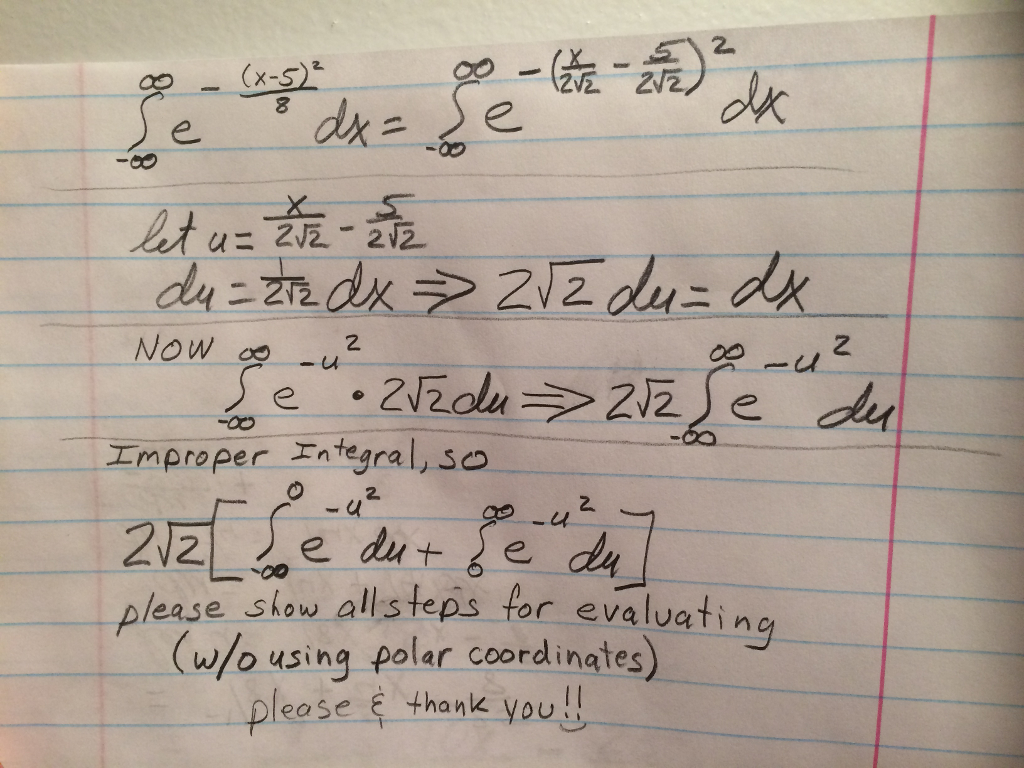 ∫_{-∞}^{∞} e^{-\frac{(x-5)^2}{8}} dx = ∫_{-∞}^{∞} e^{-(\frac{x}{2√2} - \frac{5}{2√2})^2} dx
let u = \frac{x}{2√2} - \frac{5}{2√2}
du = \frac{1}{2√2} dx ⇒ 2√2 du = dx
NOW ∫_{-∞}^{∞} e^{-u^2} • 2√2 du ⇒ 2√2 ∫_{-∞}^{∞} e^{-u^2} du
Improper Integral, so
2√2 [ ∫_{-∞}^{0} e^{-u^2} du + ∫_{0}^{∞} e^{-u^2} du ]
please show all steps for evaluating
(w/o using polar coordinates)
please & thank you!!